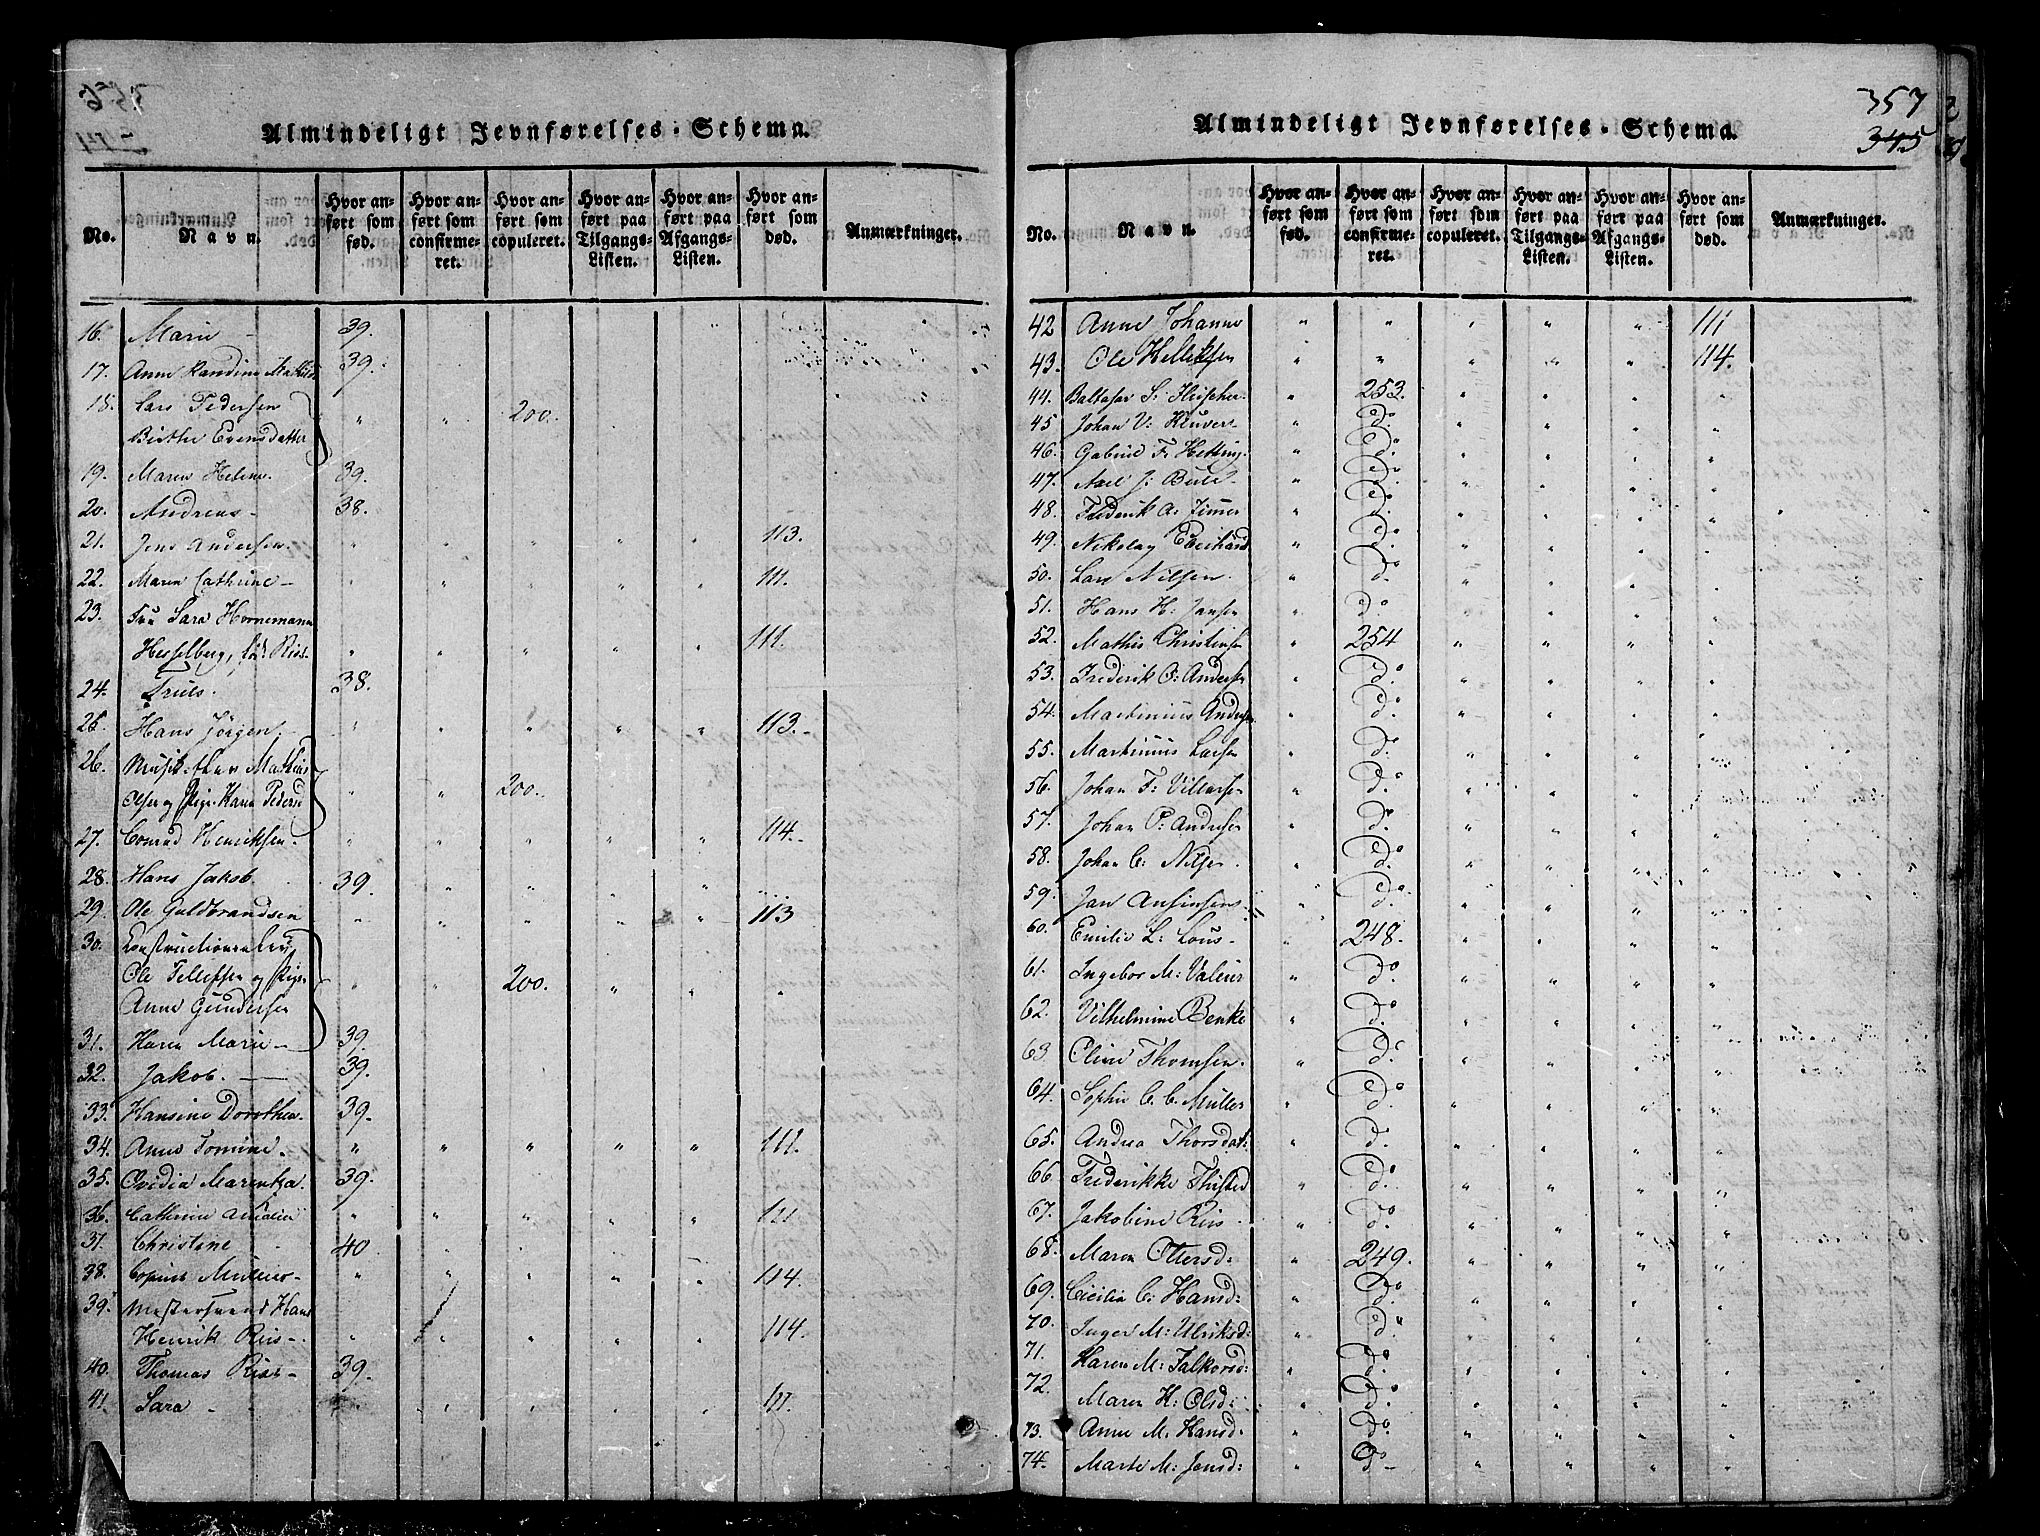 Almindeligt Jevnførelses-Schema.
No.
Navn.
Hvor anført som fød.
Hvor anført som confirmeret.
Hvor anført som copuleret.
Hvor anført paa Tilgangs-Listen.
Hvor anført paa Afgangs-Listen.
Hvor anført som død.
Anmærkninger.
16. Marie - 39.
17. Anne Randine 39.
18. Lars Pedersen " " 200.
Birthe Evensdatter
19. Maren Helene. 39.
20. Andreas - 38.
21. Jens Andersen. " " " " " 113.
22. Maren Cathrine - " " " " " 111.
23. Fru Sara Hornemann
Hesselberg, 111.
24. Truls. 38.
25. Hans Jørgen. " " " " " 113.-
26. Mathias
Olsen og Pige Karen Peders " " 200.
27. Conrad Henriksen. " " " " " 114.-
28. Hans Jakob. 39. " " " "
29. Ole Guldbrandsen " " " " " 113
30.
Ole Tellefsen og Pige " " 200. " " "
Anne Gundersen
31. Karen Marie - 39.
32. Jakob. - 39.
33. Hansine Dorothea. 39.
34. Anne Tomine. " " " " " 111.
35. Ovidia Marentza. 39.
36. Cathrine Amalia " " " " " 111
37. Christine 40
38. " " " " " 114.
39. Mestersvend Hans
Henrik Riis -. " " " " " 114.
40. Thomas Riis - 39.
41. Sara - " " " " 111.
357
345
Almindeligt Jevnførelses-Schema.
No.
Navn.
Hvor anført som fød.
Hvor anført som confirmeret.
Hvor anført som copuleret.
Hvor anført paa Tilgangs-Listen.
Hvor anført paa Afgangs-Listen.
Hvor anført som død.
Anmærkninger.
42 Anne Johanne " " " " " 111
43. Ole Helliksen " " " " " 114.
44. Baltasar S. Fleischer. " 253. " " " "
45 Johan V: Kluver " do " " " "
46. Gabriel F. Hetting " do " " " "
47. Axel J: Bull - " do " " " "
48. Frederik A: " do " " " "
49. Nikolay Eberhard " do " " " "
50. Lars Nilsen. " do " " " "
51. Hans H: Jansen " do " " " "
52. Mathis Christens " 254 " " " "
53. Frederik O: Anders " do " " " "
54. Martinius Anders " do " " " "
55. Martinius Larsen " do " " " "
56. Johan F: Villarsen " do " " " "
57. Johan P: Andersen " do " " " "
58. Johan C: Nilsen. " do " " " "
59. Jan " do " " " "
60. Emilie L: Lous - " 248. " " " "
61. Ingebor M: Valeur " do " " " "
62. Vilhelmine Benke " do " " " "
63 Oline Thomsen. " do " " " "
64. Sophie C. C. Müller " do " " " "
65. Andrea Thorsdat: " do " " " "
66. Frederikke Thisted " do " " " "
67. Jakobine Riis. " do " " " "
68. Maren Ottersd: " 249. " " " "
69. Cicilia C: Hansd: " do " " " "
70. Inger M: Ulriksd: " do " " " "
71. Karen M: Falkorsd: " do " " " "
72. Maren K: Olsd: " do " " " "
73. Anne M. Hansd: " do " " " "
74. Marte M: Jensd: " do - " " " "